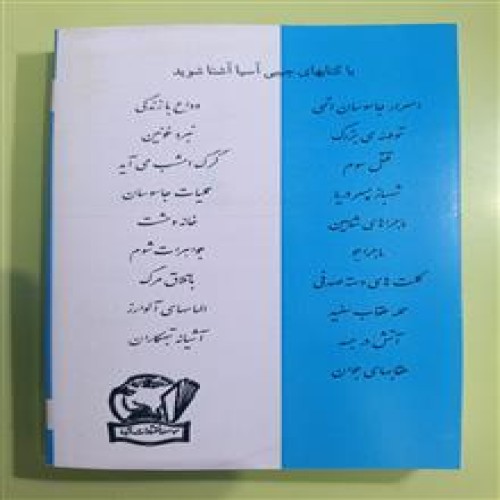 با کتابهای جیبی آسیا آشنا شوید
اسرار جاسوسان اتمی
توطئه ی بزرگ
قتل سوم
شهباز پسر دریا
ماجراهای شاهین
ماجراجو
کلت های دسته صدفی
محله عقاب سفید
آتش در
عقابهای جوان
وداع با زندگی
نبرد خونین
گرگ امشب می آید
عملیات جاسوسان
خانه وحشت
جواهرات شوم
باتلاق مرگ
الماسهای آلوارز
آشیانه تبهکاران